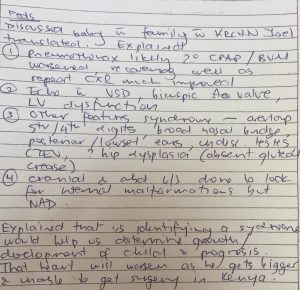 Paeds
Discussed baby & family in KECHN Joel
translated. Explained
① Pneumothorax likely 2° CPAP / BVM
worsened recovered well as
repeat CXR much improved
② Echo is VSD bicuspid Ao valve,
LV dysfunction
③ Other features syndrome – overlap
5th/4th digits, broad nasal bridge,
posterior/lowset ears, undesc testes
CTEV, ? hip dysplasia (absent gluteal
crease)
④ Cranial & abd u/s done to look
for internal malformations but
NAD.
Explained that us identifying a syndrome
would help us determine growth/
development of child & prognosis.
That heart will worsen as he gets bigger
& unable to get surgery in Kenya.